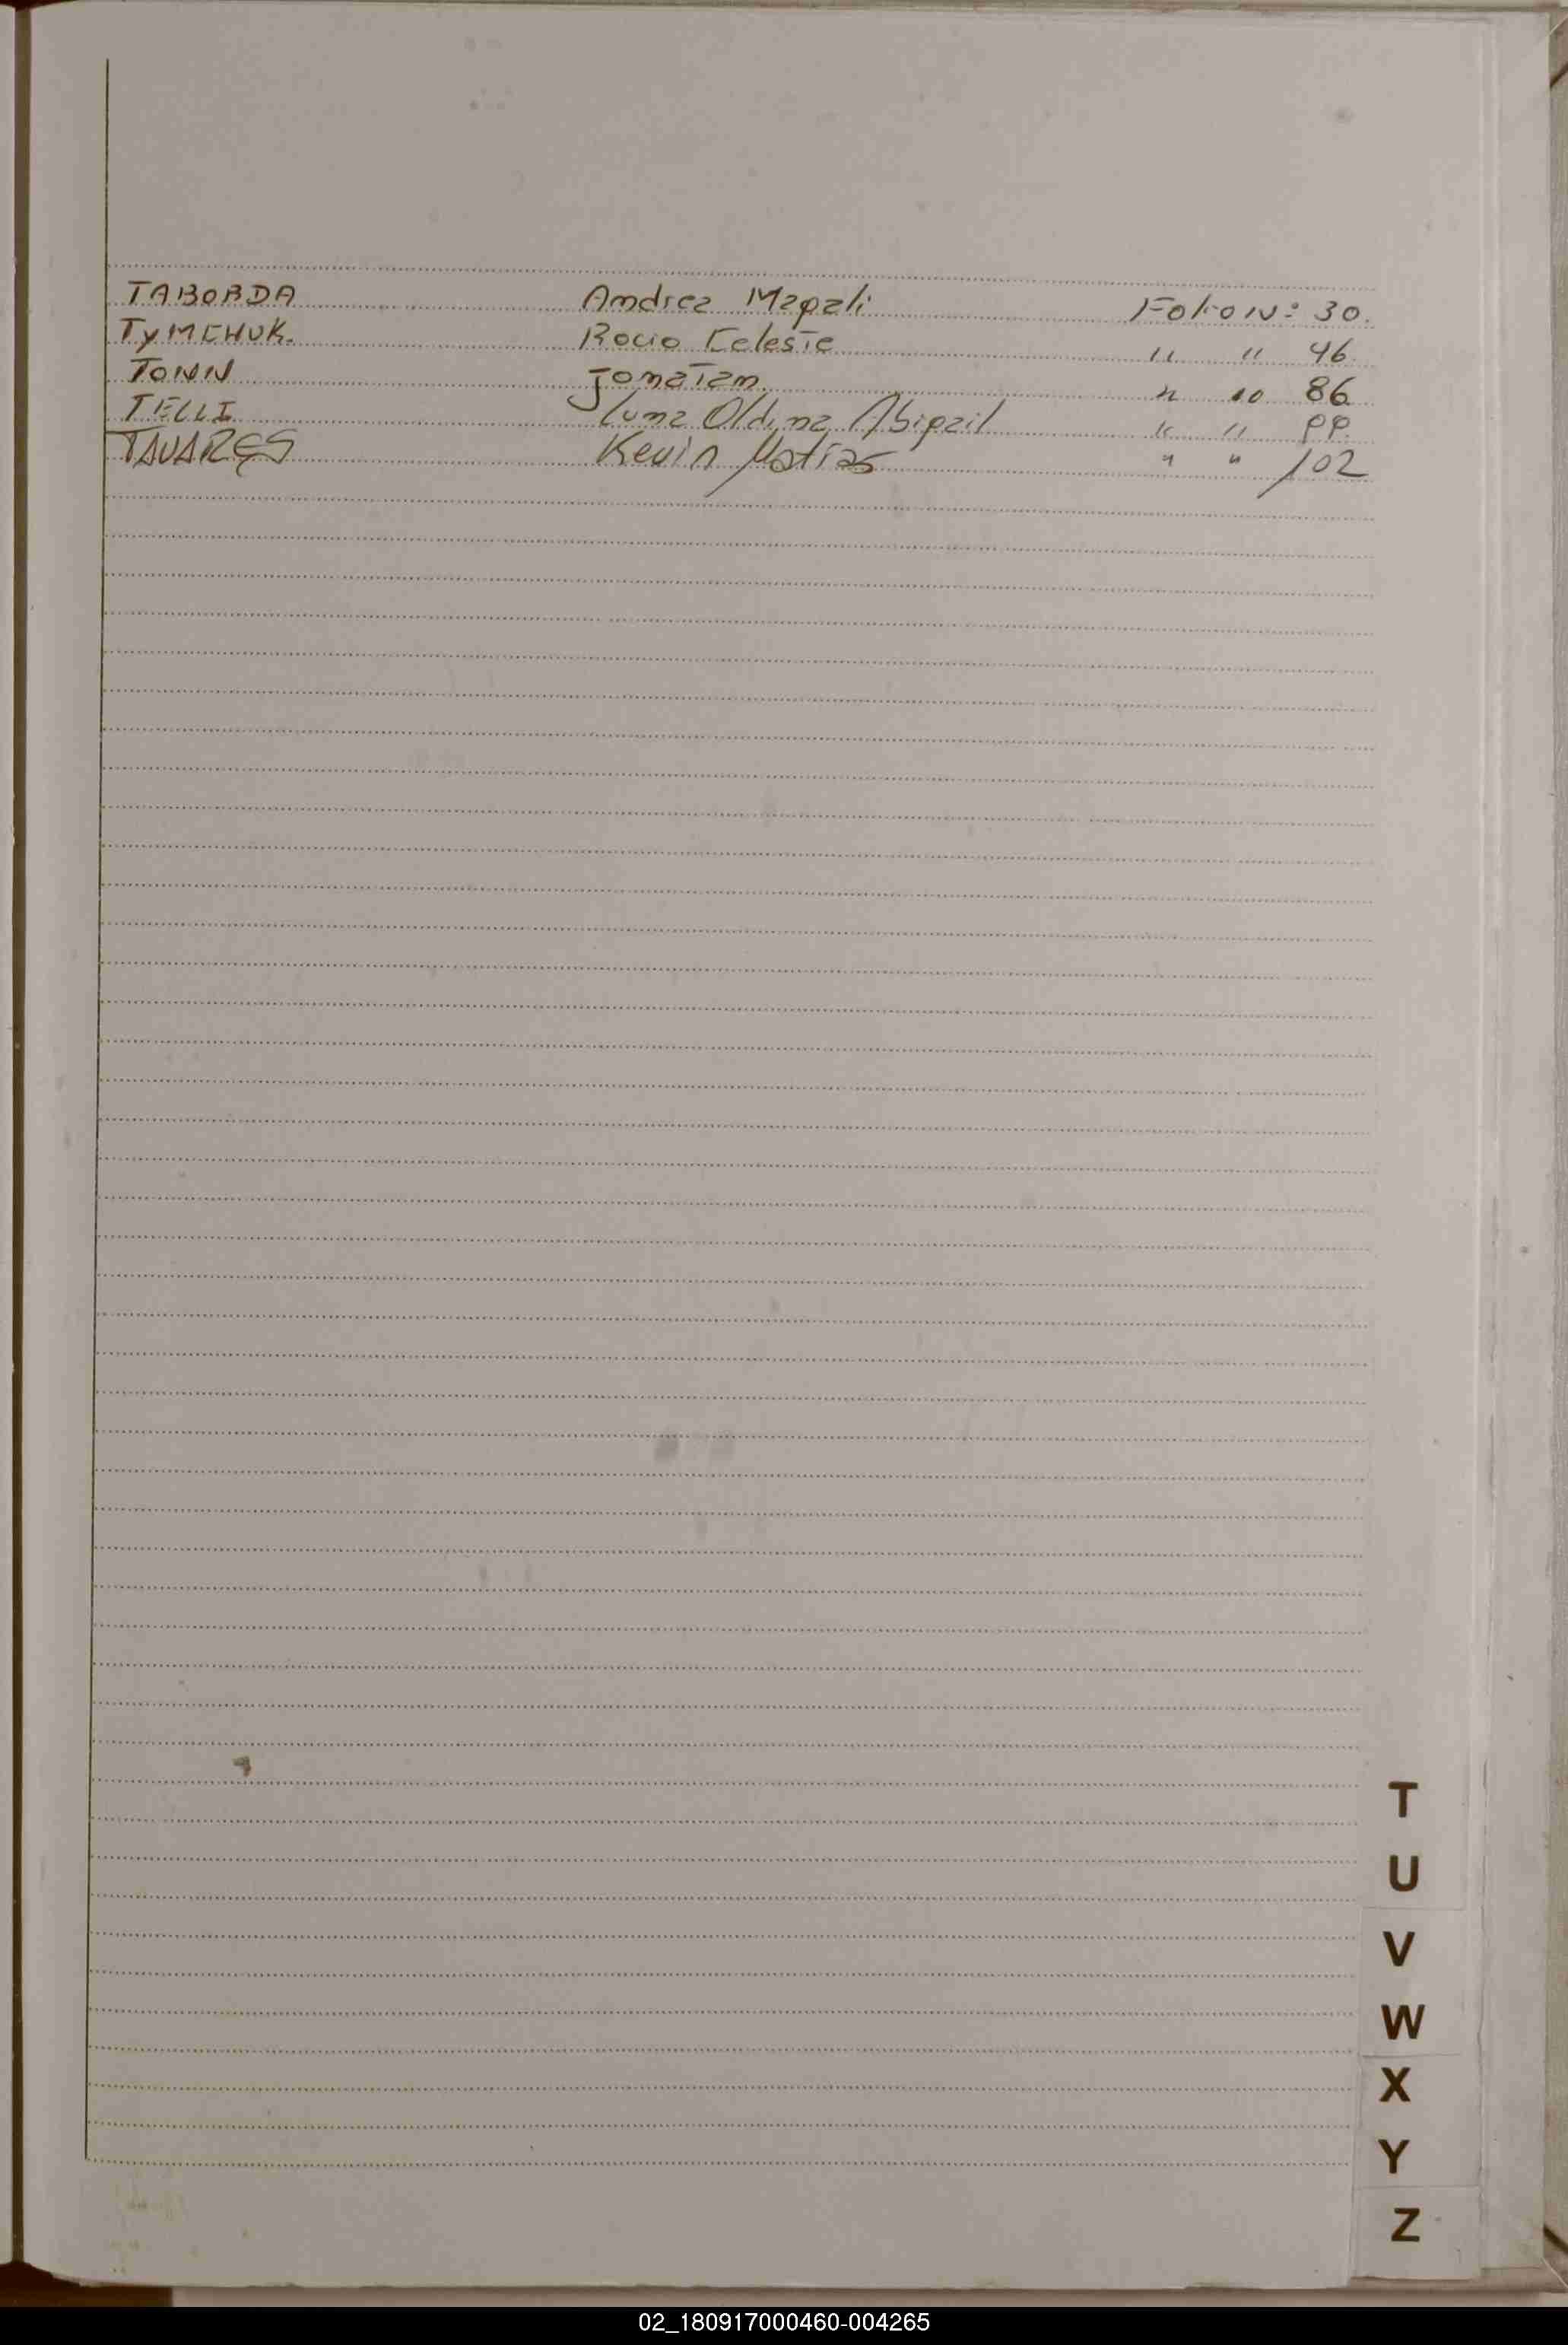 TABORDA Andrea Magali Folio Nº 30.
TyMCHUK. Rocio Celeste " " 46
TONN Jonatan. " " 86
TELLI Luna Abigail " " 99.
TAVARES Kevin Matias " " 102
T
U
V
W
X
Y
Z
02_180917000460-004265